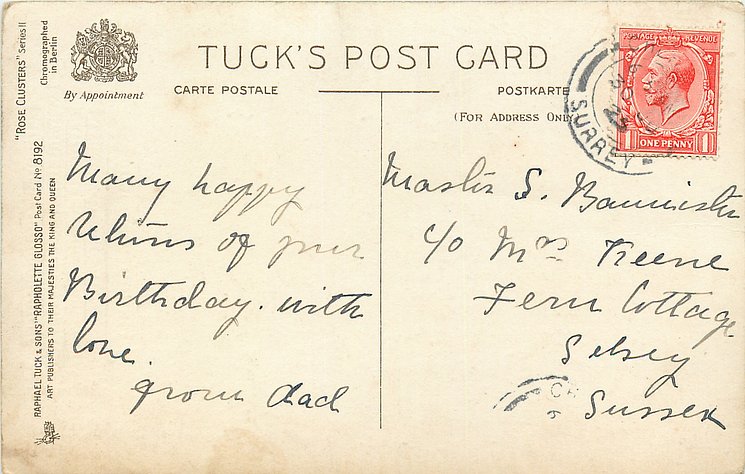 TUCK'S POST CARD
CARTE POSTALE
POSTKARTE
(FOR ADDRESS ONLY
By Appointment
"ROSE CLUSTERS" Series II
Chromographed
in Berlin
RAPHAEL TUCK & SONS' "RAPHOLETTE GLOSSO" Post Card No 8192
ART PUBLISHERS TO THEIR MAJESTIES THE KING AND QUEEN
POSTAGE REVENUE
1 ONE PENNY 1
SURREY
Many happy
returns of your
Birthday. with
love.
from dad
Master S. Bannister
c/o Mrs Keene
Fern Cottage
Selsey
Sussex